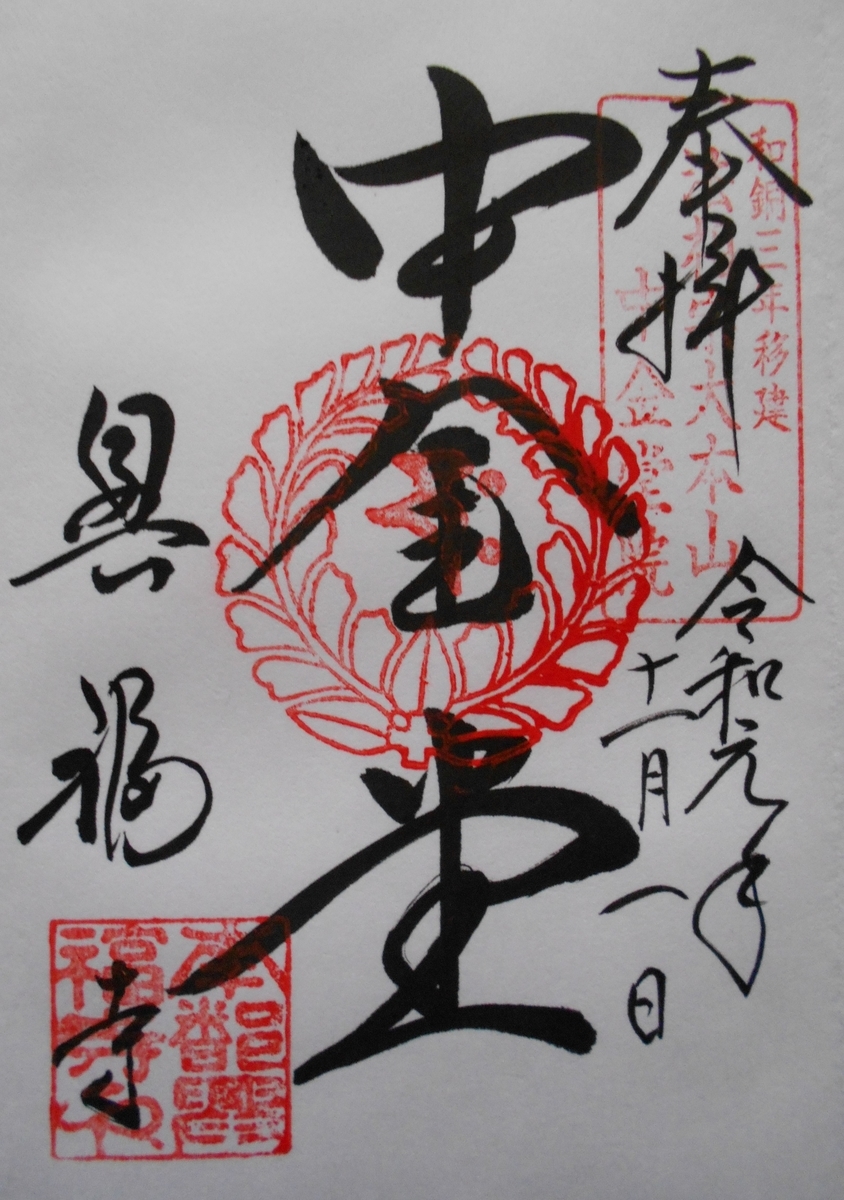 奉拝
令和元年
十一月一日
和銅三年移建
法相宗大本山
中金堂院
中金堂
興福寺